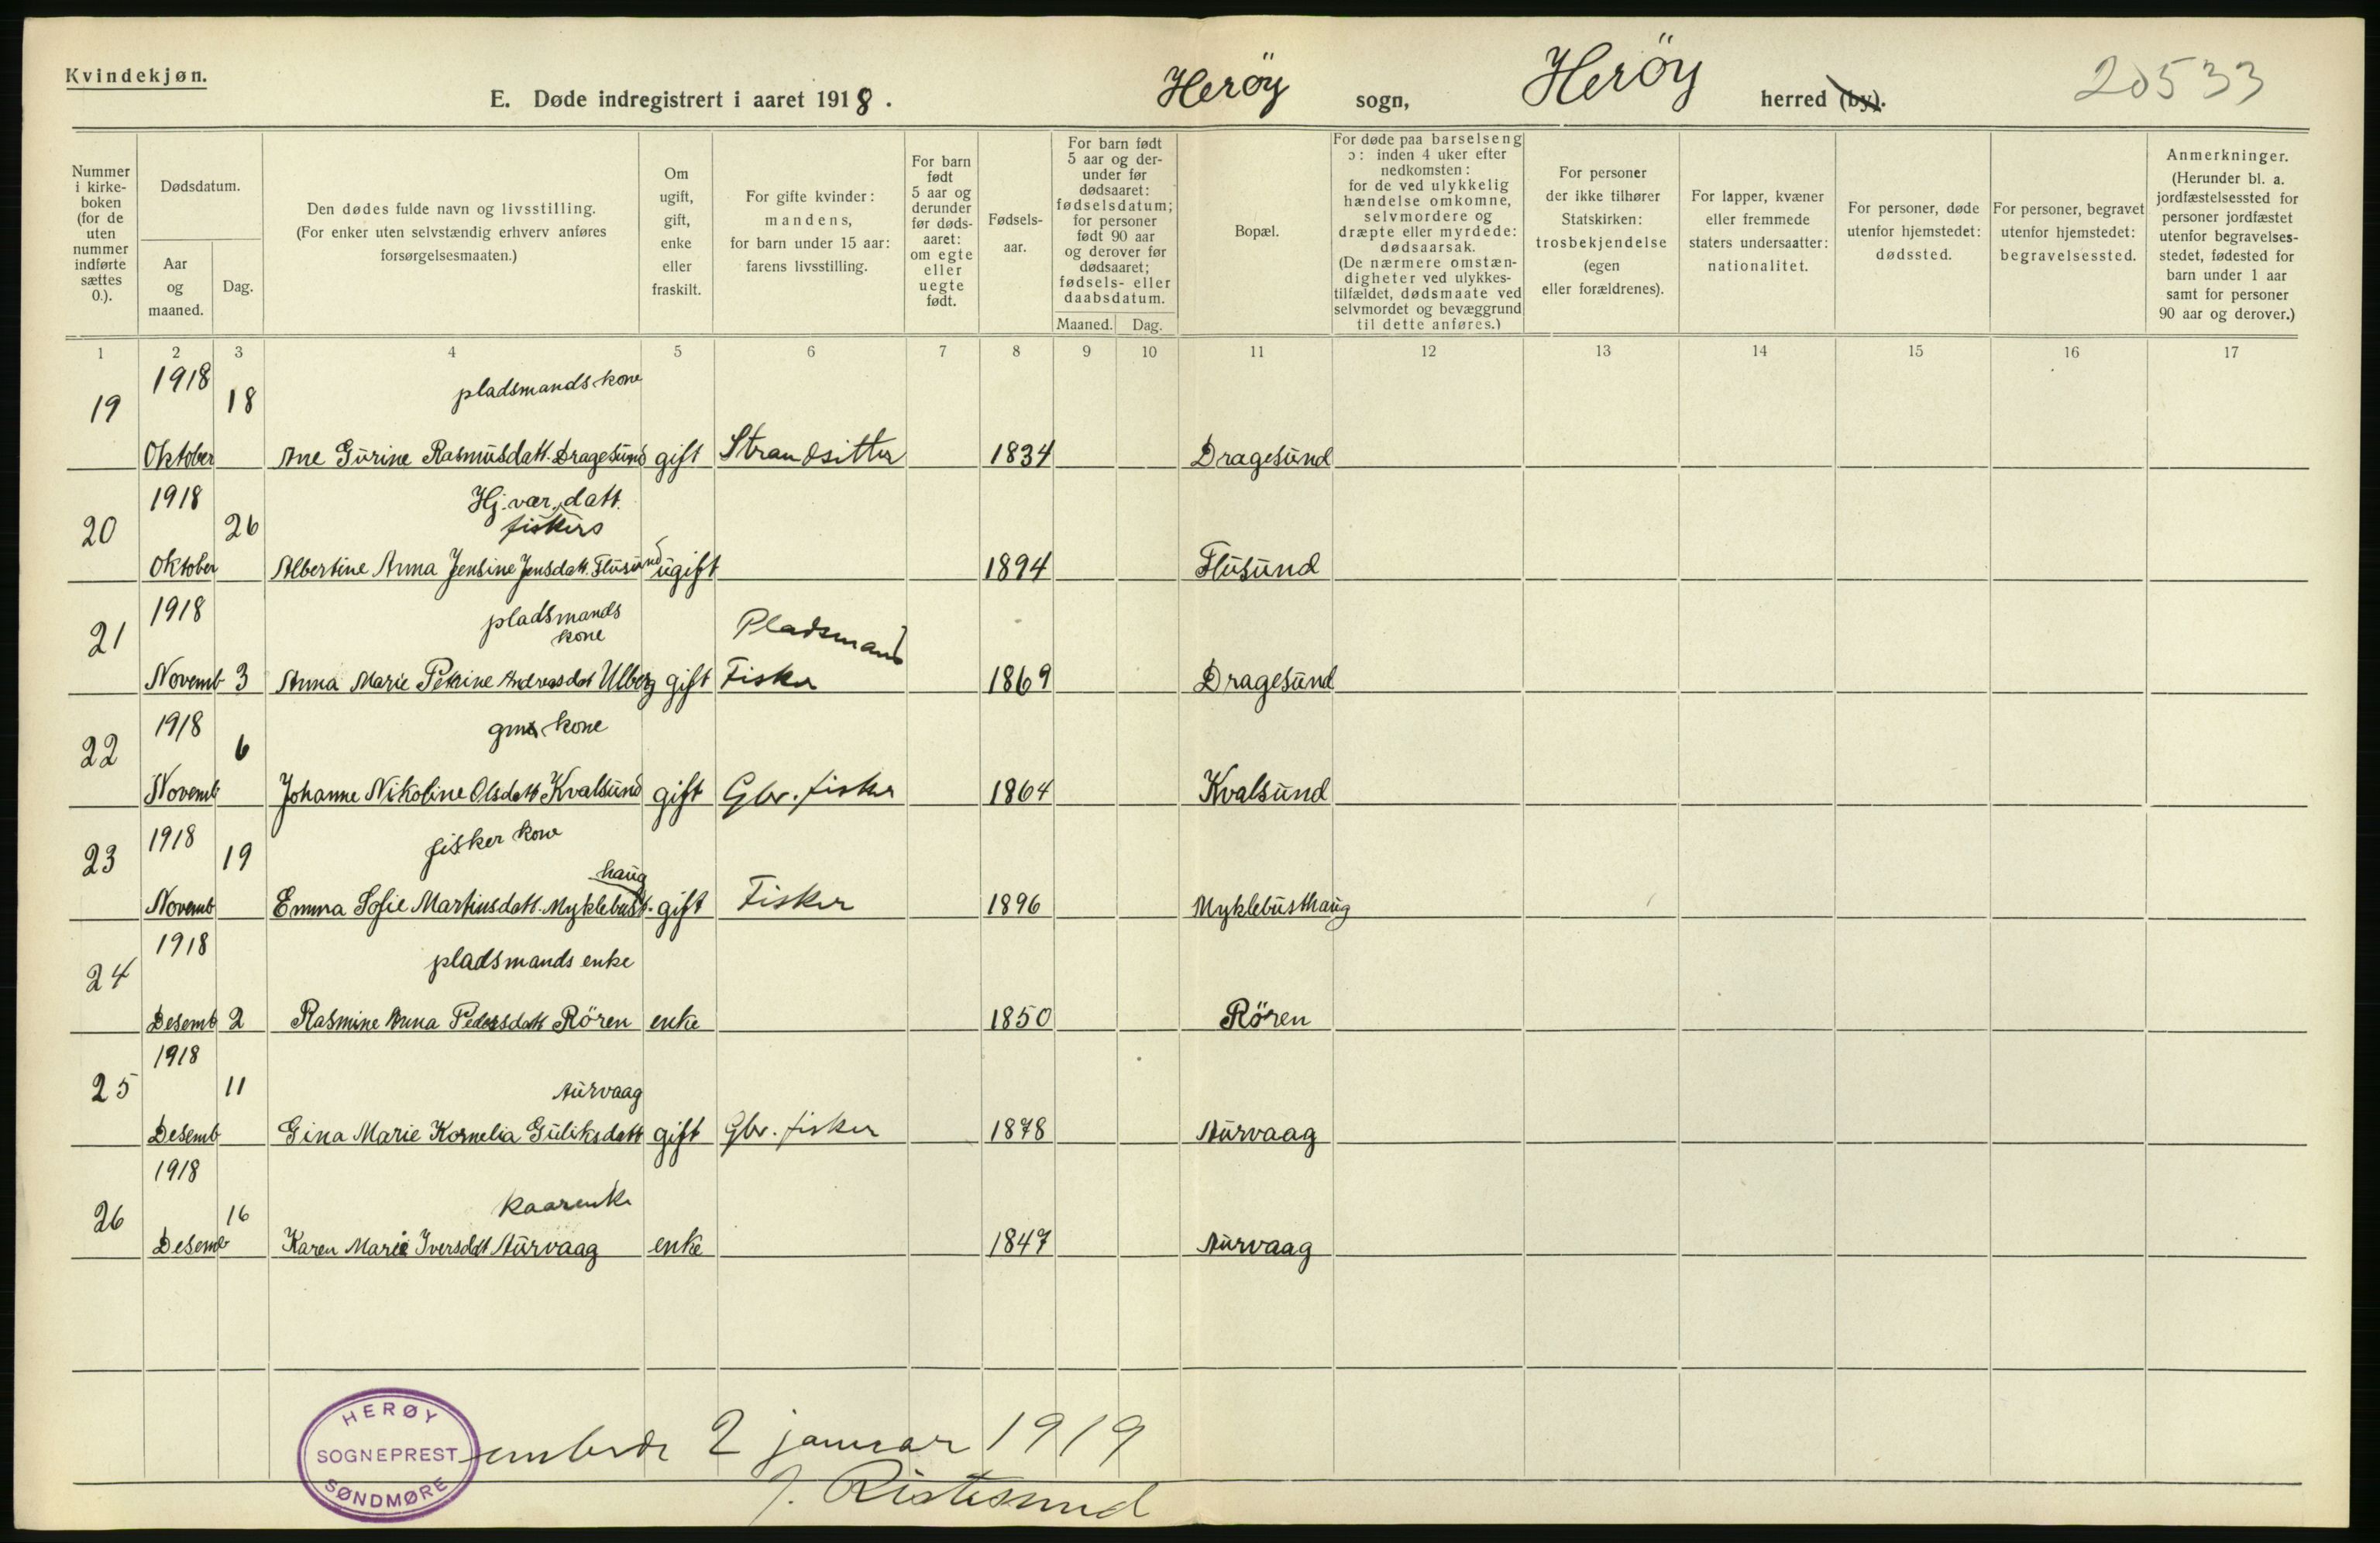 Kvindekjøn.
E. Døde indregistrert i aaret 1918.
Heröy sogn, Heröy herred (by).
20533
Nummer i kirke-boken (for de uten nummer indførte sættes 0.).
Dødsdatum.
Aar og maaned.
Dag.
Den dødes fulde navn og livsstilling.
(For enker uten selvstændig erhverv anføres forsørgelsesmaaten.)
Om ugift, gift, enke eller fraskilt.
For gifte kvinder: mandens, for barn under 15 aar: farens livsstilling.
For barn født 5 aar og derunder før døds-aaret: om egte eller uegte født.
Fødsels-aar.
For barn født 5 aar og der-under før dødsaaret: fødselsdatum; for personer født 90 aar og derover før dødsaaret; fødsels- eller daabsdatum.
Maaned. Dag.
Bopæl.
For døde paa barselseng ɔ: inden 4 uker efter nedkomsten: for de ved ulykkelig hændelse omkomne, selvmordere og dræpte eller myrdede: dødsaarsak. (De nærmere omstæn-digheter ved ulykkes-tilfældet, dødsmaate ved selvmordet og bevæggrund til dette anføres.)
For personer der ikke tilhører Statskirken: trosbekjendelse (egen eller forældrenes).
For lapper, kvæner eller fremmede staters undersaatter: nationalitet.
For personer, døde utenfor hjemstedet: dødssted.
For personer, begravet utenfor hjemstedet: begravelsessted.
Anmerkninger. (Herunder bl. a. jordfæstelsessted for personer jordfæstet utenfor begravelses-stedet, fødested for barn under 1 aar samt for personer 90 aar og derover.)
1 2 3 4 5 6 7 8 9 10 11 12 13 14 15 16 17
1918 pladsmands kone
19 18
Oktober Ane Gurine Rasmusdatt. Dragesund gift Strandsitter 1834 Dragesund
1918 Hj. vær, datt.
20 26 fiskers
Oktober Albertine Anna Jensine Jensdatt. Flusund ugift 1894 Flusund
1918 pladsmands
21 kone Pladsmand
Novemb 3 Anna Marie Petrine Andreasdat Ulberg gift Fisker 1869 Dragesund
1918 gms kone
22 6
Novemb Johanne Nikoline Olsdatt Kvalsund gift Gbr. fisker 1864 Kvalsund
1918 fisker kone
23 19 haug
Novemb Emma Sofie Martinsdatt. Myklebust- gift Fisker 1896 Myklebusthaug
1918
24 pladsmands enke
Desemb 2 Rasmine Anna Pedersdatt Rören enke 1850 Rören
1918
25 11 Aurvaag
Desemb Gina Marie Kornelia Guliksdatt gift Gbr. fisker 1878 Aurvaag
1918
26 16 Kaarenke
Desemb Karen Marie Iversdatt Aurvaag enke 1847 Aurvaag
HERØY
SOGNEPREST
SØNDMØRE
embede 2 januar 1919
J. Ristesund